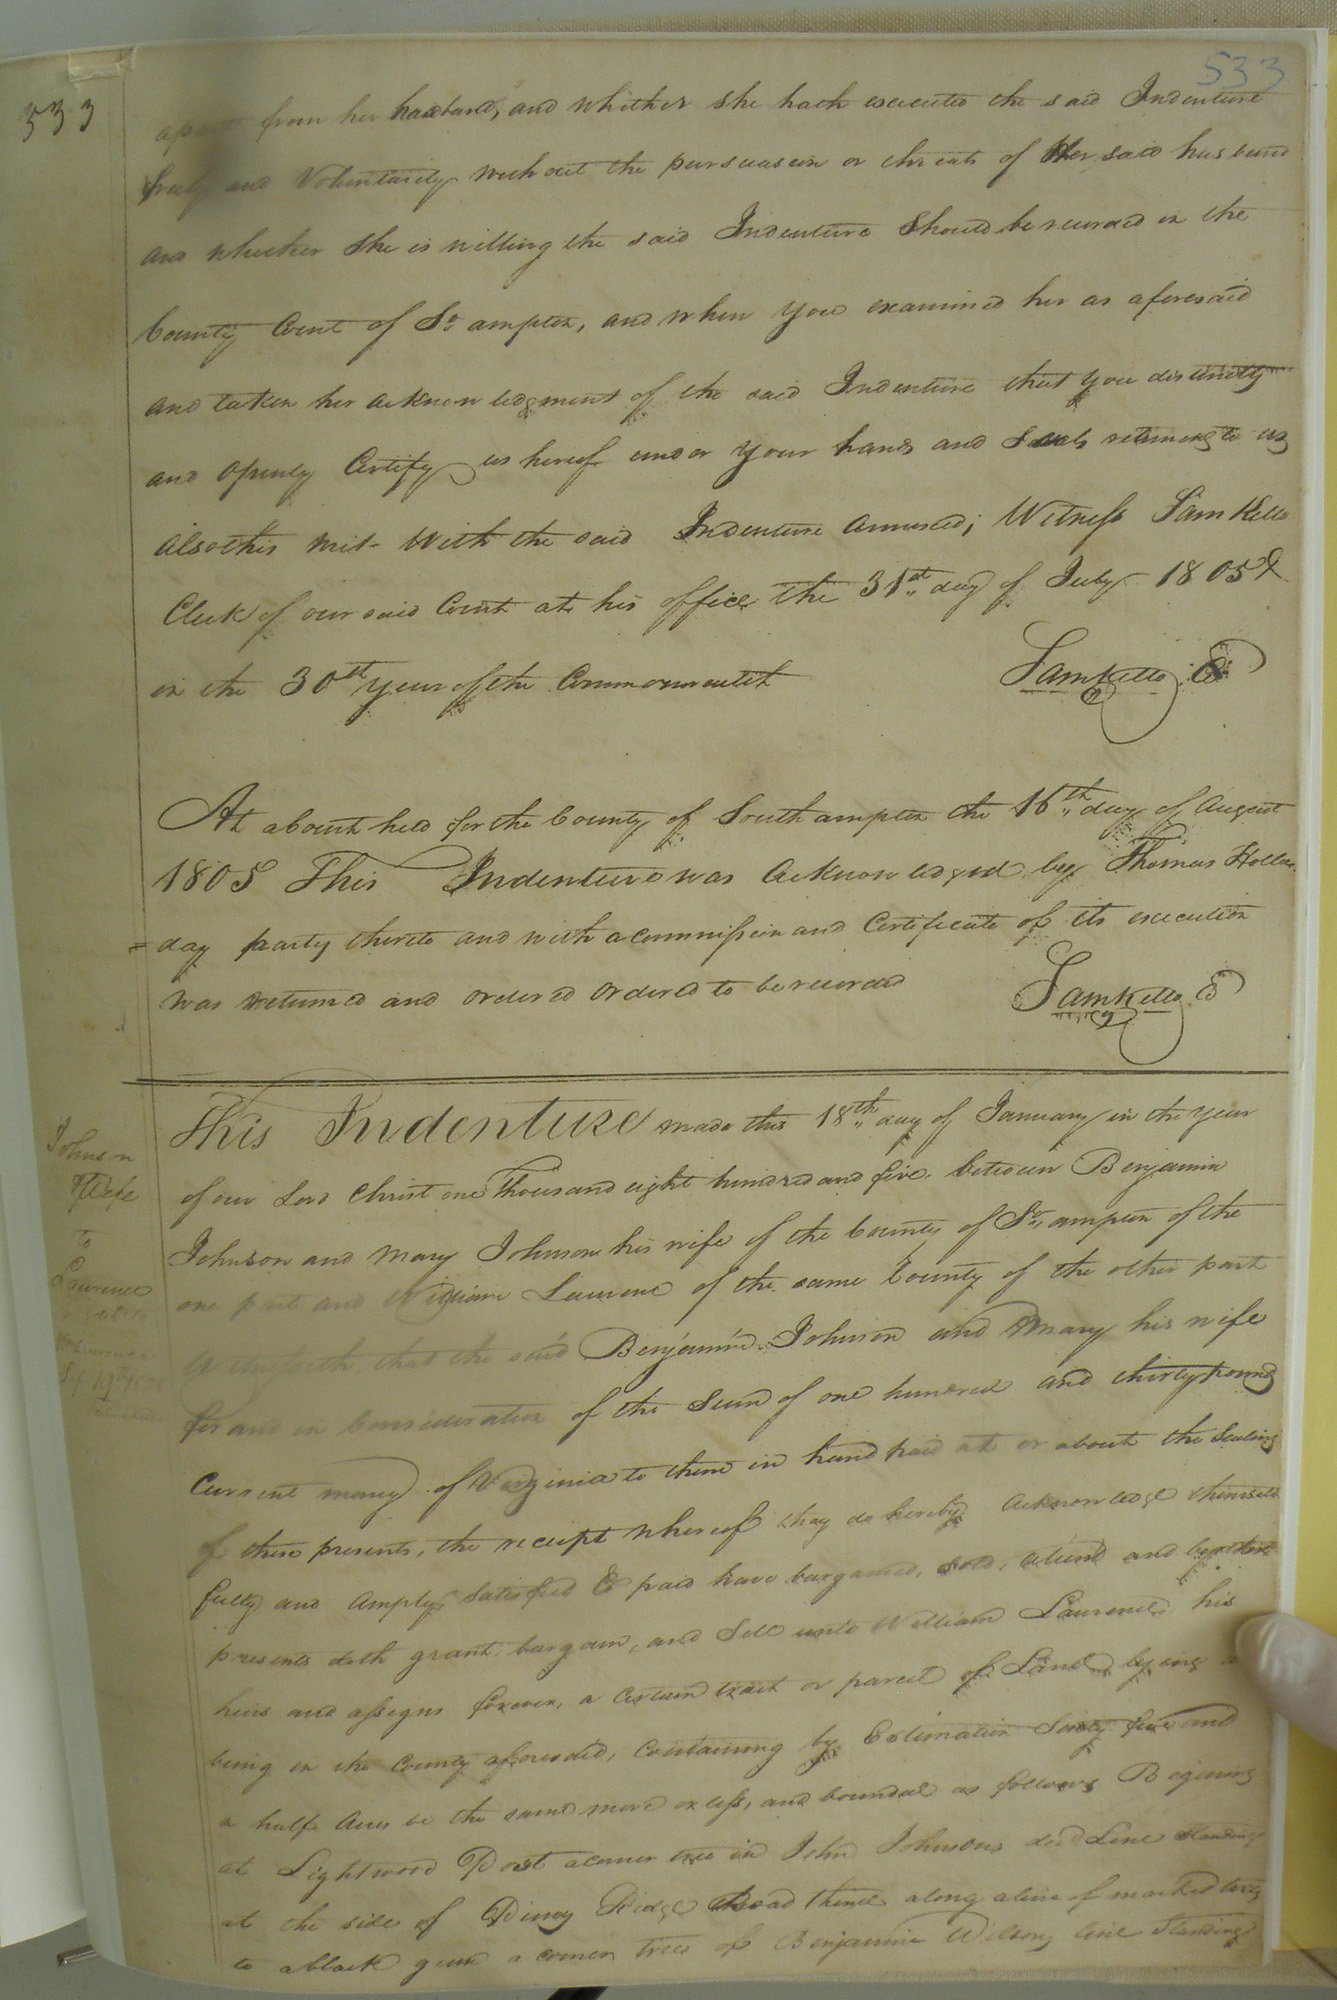 533
533
apart from her husband, and whether she hath executed the said Indenture
freely and Voluntarily without the persuasion or threats of Her said husband
and whether She is willing the said Indenture Should be recorded in the
County Court of So. ampton, and when you examined her as aforesaid
and taken her acknowledgment of the said Indenture that you distinctly
and openly Certify us hereof under your hands and Seals returning to us
also this writ With the said Indenture annexed; Witness Sam Kello
Clerk of our said Court at his office the 31st. day of July 1805
in the 30th year of the Commonwealth
Sam Kello
At a Court held for the County of Southampton the 16th. day of August
1805 This Indenture was Acknowledged by Thomas Holla
=day party thereto and with a commission and Certificate of its execution
was returned and ordered ordered to be recorded
Sam Kello
This Indenture made this 18th. day of January in the Year
of our Lord Christ one Thousand eight hundred and five between Benjamin
Johnson and Mary Johnson his wife of the County of So. ampton of the
one part and William Laurence of the same County of the other part
Witnesseth that the said Benjamin Johnson and Mary his wife
for and in Consideration of the Sum of one hundred and thirty pounds
Current money of Virginia to them in hand paid at or about the Sealing
of these presents, the receipt whereof they do hereby Acknowledge themselves
fully and Amply Satisfied & paid have bargained, sold, and by these
presents doth grant, bargain, and Sell unto William Laurence his
heirs and assigns forever, a Certain tract or parcel of Land lying
being in the County aforesaid, Containing by Estimation Sixty five and
a half Acres be the same more or less, and bounded as follows Begining
at Lightwood Post a corner tree in John Johnsons decd Line Standing
at the side of Piney Ridge Road thence along a line of marked trees
to a black gum a corner tree of Benjamin Wilsons line Standing
Johnson
& Wife
To
Laurence